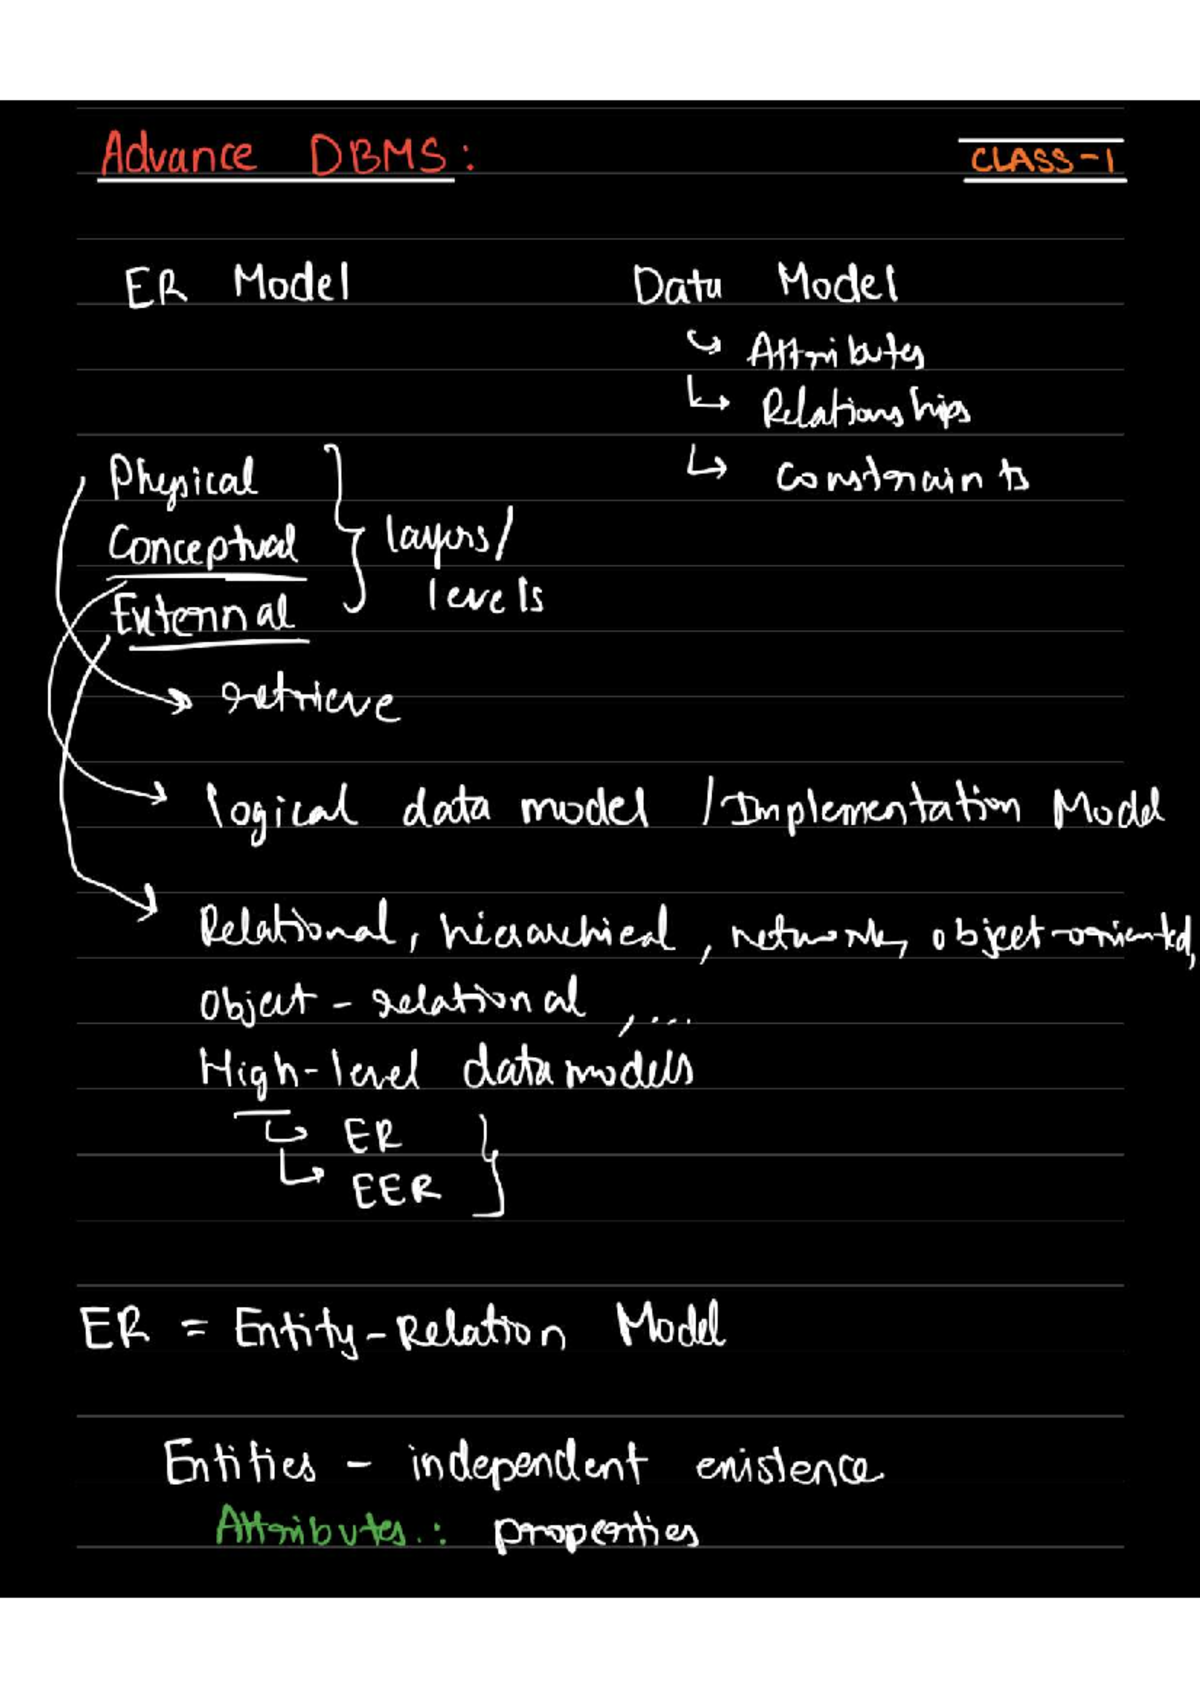 Advance DBMS:
CLASS-1
ER Model
Data Model
Attributes
Relationships
Constraints
Physical
Conceptual
External
layers/
levels
retrieve
logical data model / Implementation Model
Relational, hierarchical, network, object-oriented,
Object-relational, ...
High-level data models
ER
EER
ER = Entity-Relation Model
Entities - independent existence
Attributes.: properties